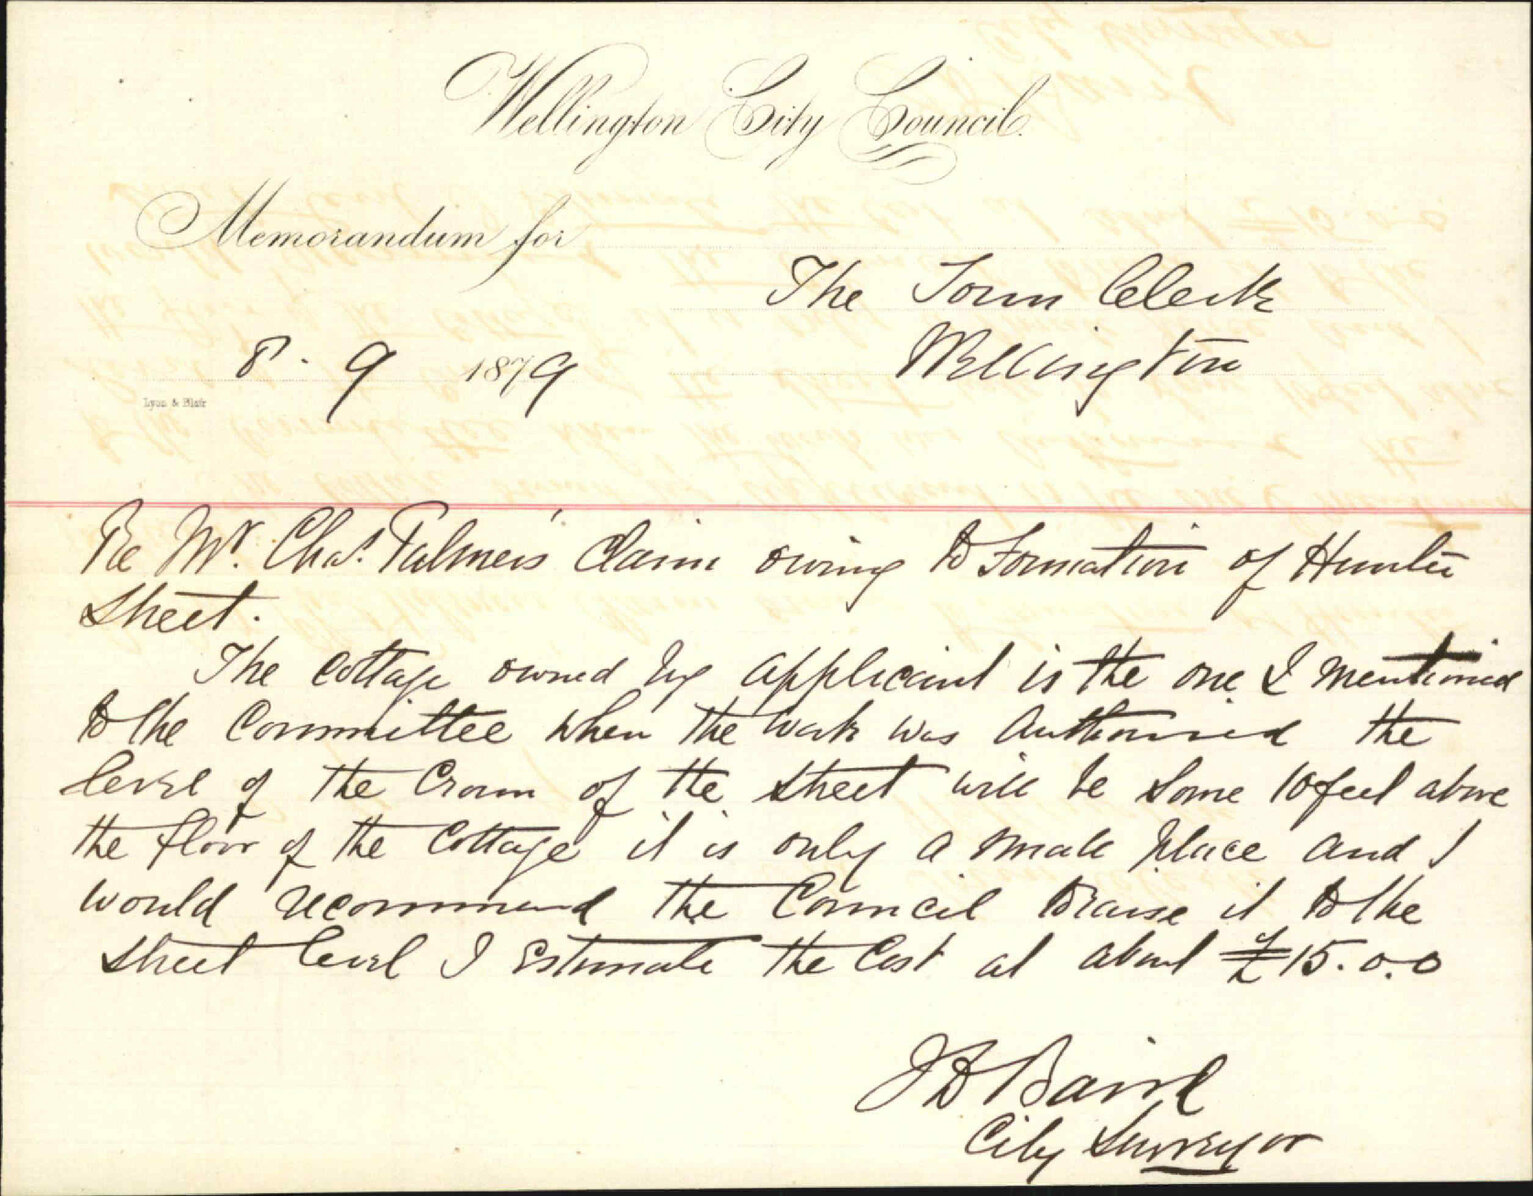 Wellington City Council.
Memorandum for
The Town Clerk
Wellington
8 . 9 1879
Lyon & Blair
Re Mr. Chas. Palmer's claim owing to formation of Hunter
Street.
The cottage owned by applicant is the one I mentioned
to the Committee when the work was authorised the
level of the Crown of the street will be some 10 feet above
the floor of the cottage it is only a small place and I
would recommend the Council to raise it to the
street level I estimate the cost at about £15.0.0
J D Baird
City Surveyor